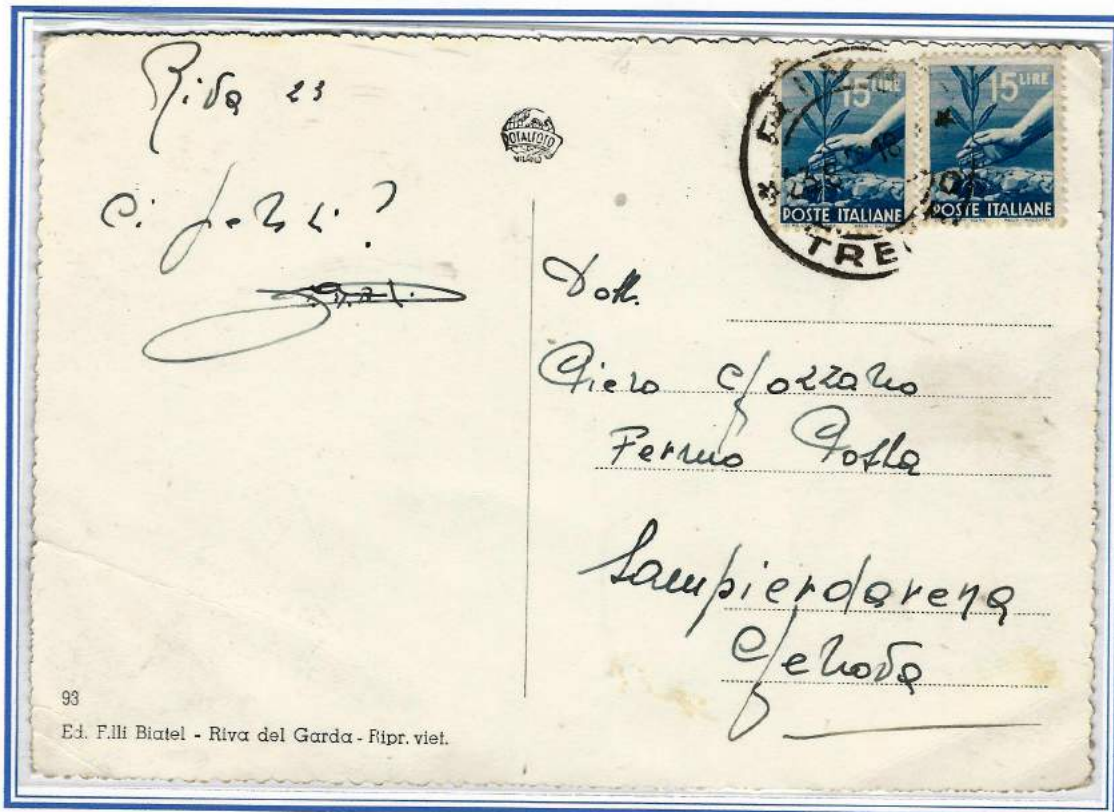 Riva 23
Ci pensi?
ROTALFOTO
MILANO
15 LIRE
POSTE ITALIANE
15 LIRE
POSTE ITALIANE
TRE
Dott.
Piero Gozzano
Fermo Posta
Sampierdarena
Genova
93
Ed. F.lli Biatel - Riva del Garda - Ripr. viet.